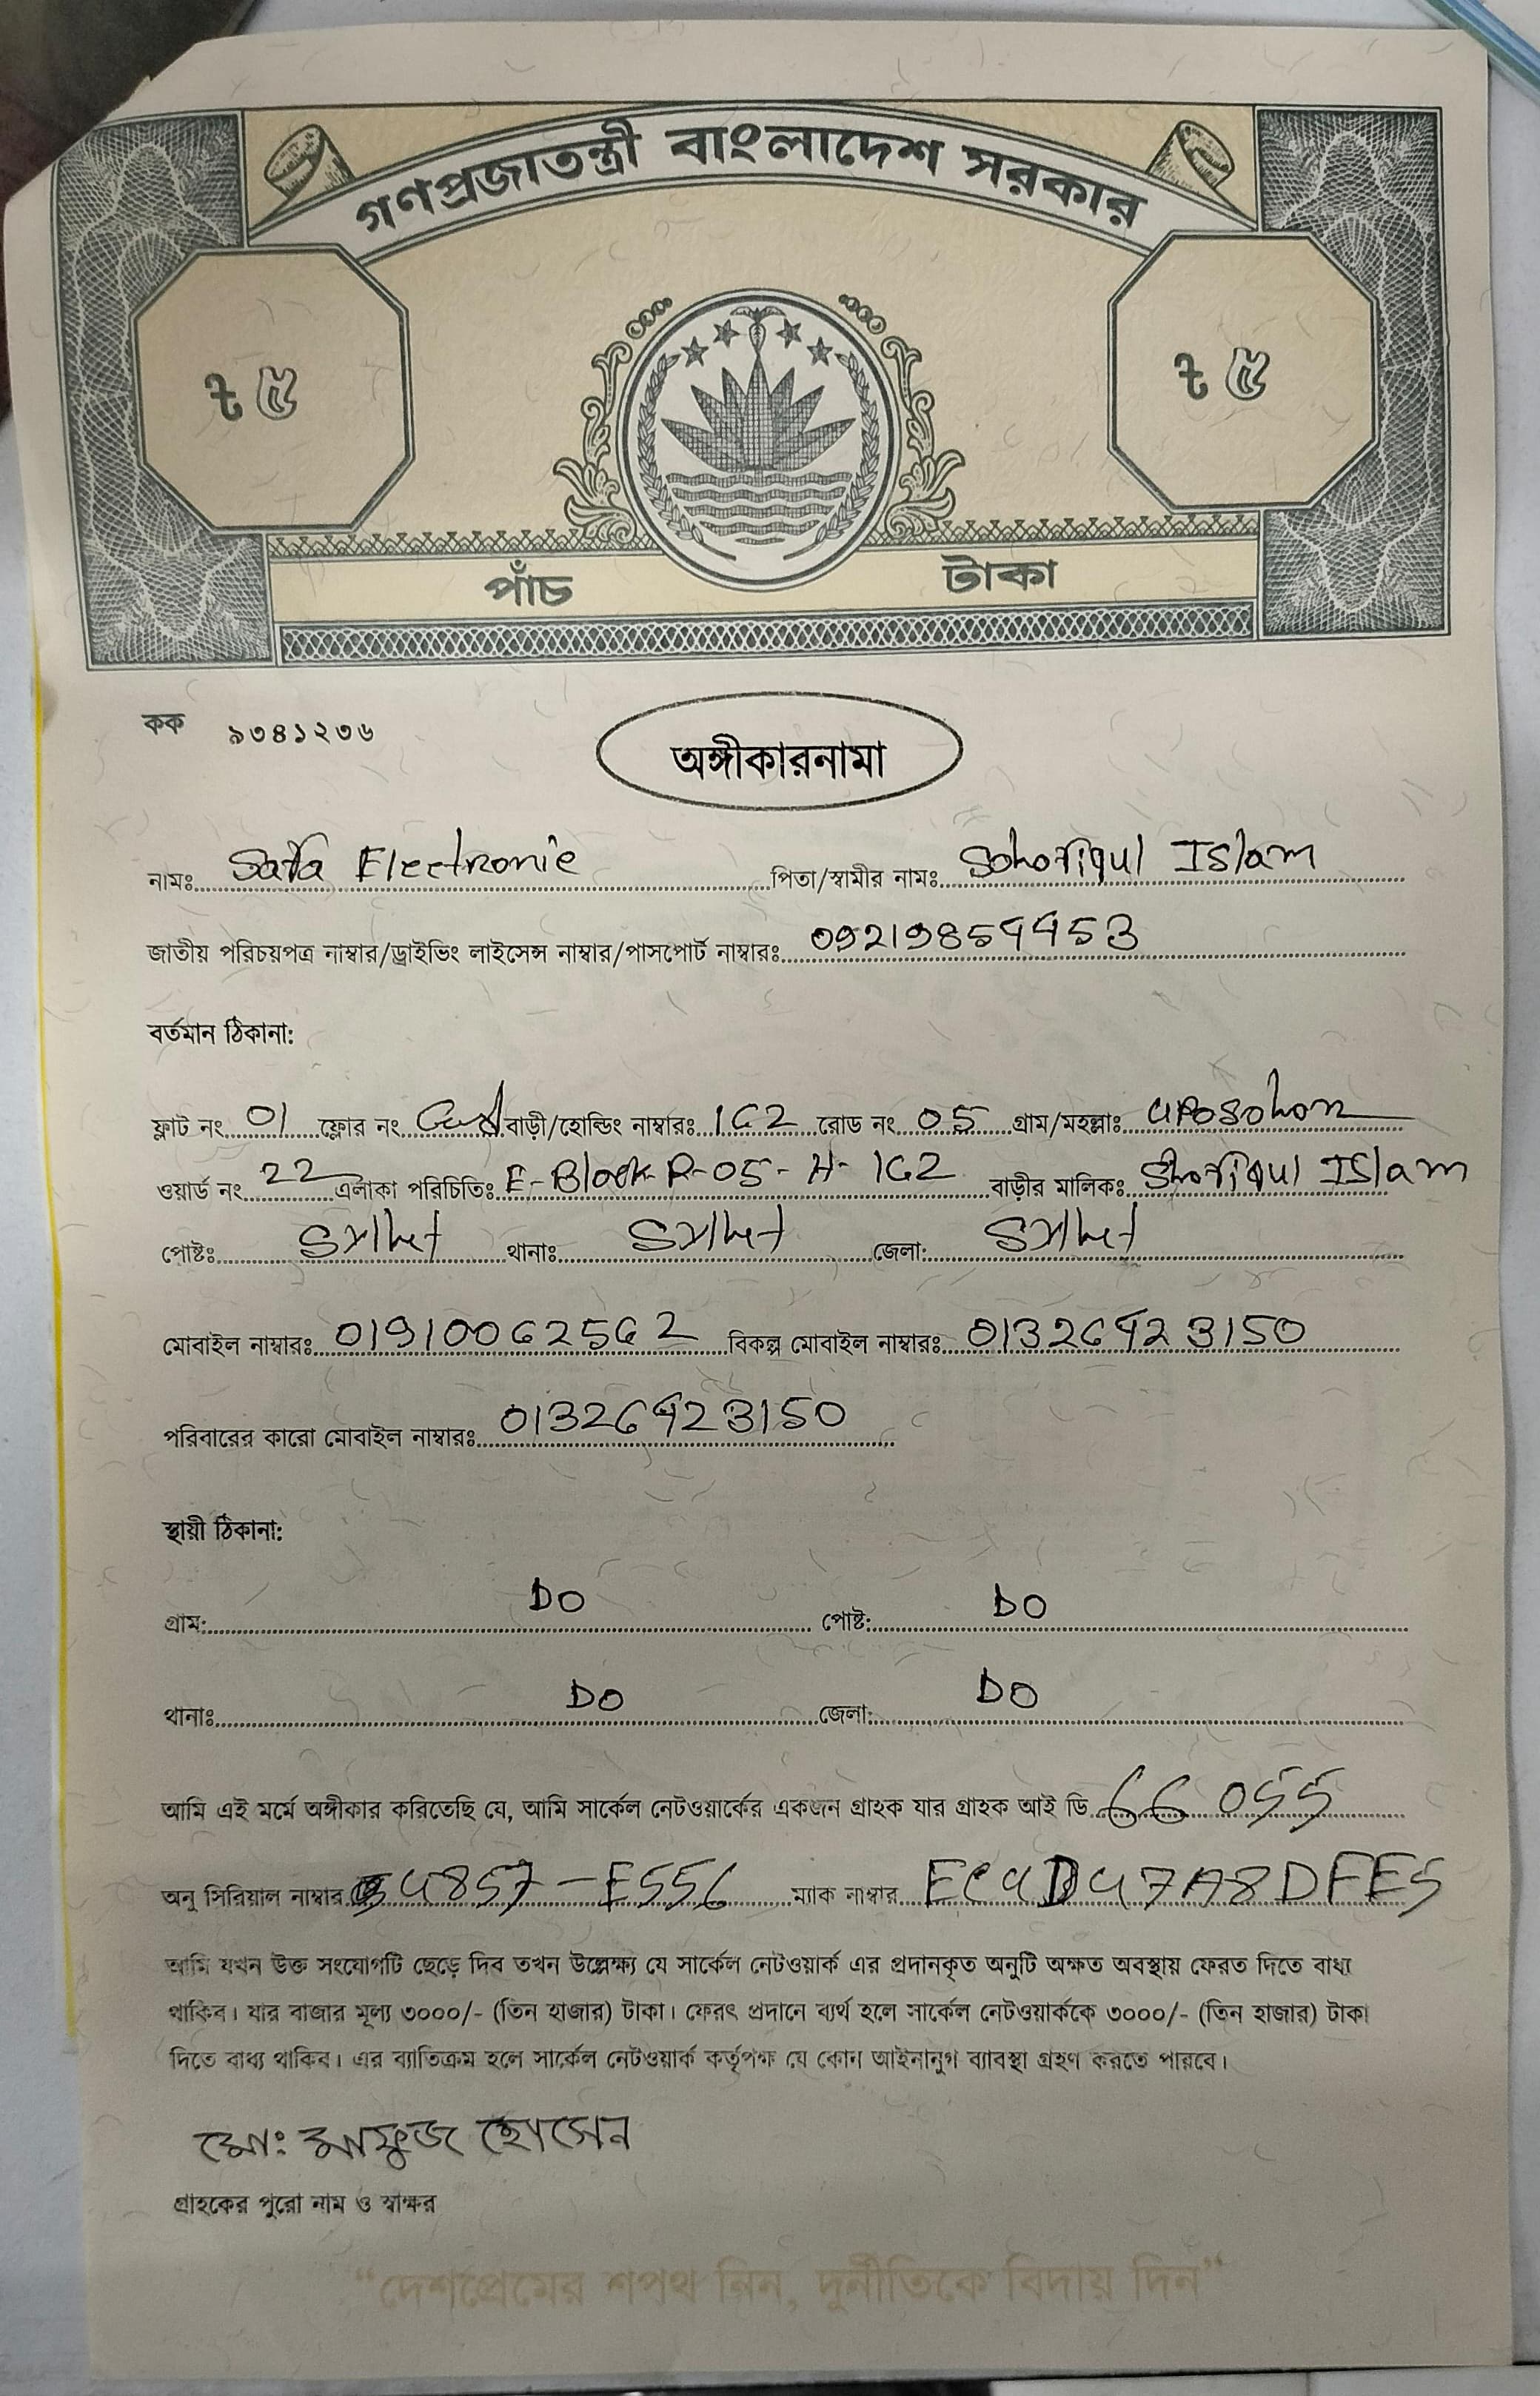 গণপ্রজাতন্ত্রী বাংলাদেশ সরকার
৳ ৫ ৳ ৫
পাঁচ টাকা
কক ৯৩৪১২৩৬
অঙ্গীকারনামা
নামঃ Safa Electronic পিতা/স্বামীর নামঃ Sohofiqul Islam
জাতীয় পরিচয়পত্র নাম্বার/ড্রাইভিং লাইসেন্স নাম্বার/পাসপোর্ট নাম্বারঃ
বর্তমান ঠিকানা:
ফ্লাট নং 01 ফ্লোর নং বাড়ী/হোল্ডিং নাম্বারঃ 162 রোড নং 05 গ্রাম/মহল্লাঃ uposohon
ওয়ার্ড নং 22 এলাকা পরিচিতিঃ E-Block R-05-H-162 বাড়ীর মালিকঃ Shofiqul Islam
পোষ্টঃ Sylhet থানাঃ Sylhet জেলা: Sylhet
মোবাইল নাম্বারঃ 01910062562 বিকল্প মোবাইল নাম্বারঃ 01326423150
পরিবারের কারো মোবাইল নাম্বারঃ 01326423150
স্থায়ী ঠিকানা:
গ্রাম: DO পোষ্ট: DO
থানাঃ DO জেলা: DO
আমি এই মর্মে অঙ্গীকার করিতেছি যে, আমি সার্কেল নেটওয়ার্কের একজন গ্রাহক যার গ্রাহক আই ডি 66055
অনু সিরিয়াল নাম্বার ম্যাক নাম্বার
আমি যখন উক্ত সংযোগটি ছেড়ে দিব তখন উল্লেক্ষ্য যে সার্কেল নেটওয়ার্ক এর প্রদানকৃত অনুটি অক্ষত অবস্থায় ফেরত দিতে বাধ্য
থাকিব। যার বাজার মূল্য ৩০০০/- (তিন হাজার) টাকা। ফেরৎ প্রদানে ব্যর্থ হলে সার্কেল নেটওয়ার্ককে ৩০০০/- (তিন হাজার) টাকা
দিতে বাধ্য থাকিব। এর ব্যাতিক্রম হলে সার্কেল নেটওয়ার্ক কর্তৃপক্ষ যে কোন আইনানুগ ব্যাবস্থা গ্রহণ করতে পারবে।
মো: মাফুজ হোসেন
গ্রাহকের পুরো নাম ও স্বাক্ষর
“দেশপ্রেমের শপথ নিন, দুর্নীতিকে বিদায় দিন”